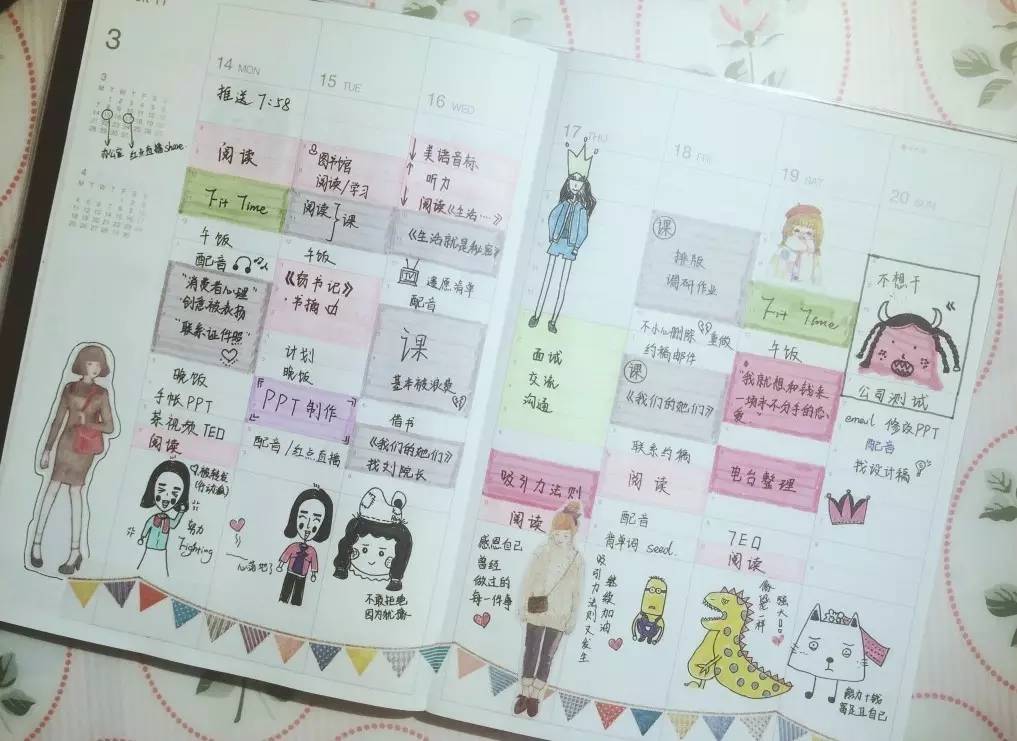 3
14 MON
推送 7:58
阅读
Fit Time
午饭
配音
"消费者心理"
创意被表扬
"联系证件照"
晚饭
手帐PPT
茶视频 TED
阅读
努力
Fighting
15 TUE
图书馆
阅读/学习
阅读
课
午饭
《窃书记》
·书摘
计划
晚饭
PPT制作
配音/红点直播
16 WED
美语音标
听力
阅读《生活…》
《生活就是秘密》
TV
还原清单
配音
课
借书
《我们的她们》
找刘院长
不敢拒绝
17 THU
面试
交流
沟通
吸引力法则
阅读
感恩自己
曾经
做过的
每一件事
18 FRI
课
排版
调研作业
不小心删除
重做
约稿邮件
课
《我们的她们》
联系约稿
阅读
配音
背单词 seed.
继续加油
吸引力法则又发生
19 SAT
Fit Time
午饭
"我就想和钱来
一场永不分手的恋
爱"
电台整理
TED
阅读
强大!!
20 SUN
不想干
公司测试
email 修改PPT
配音
找设计稿
3
4
办公室 红点直播 share